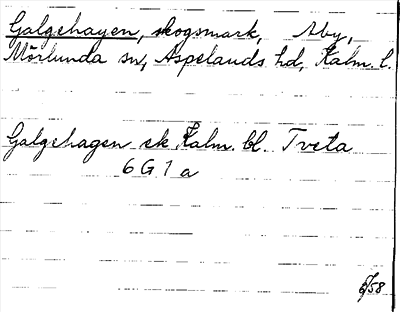 Galgehagen, skogsmark, Åby,
Mörlunda sn, Aspelands hd, Kalm. l.
Galgehagen ek Kalm. bl. Tveta
6 G 1 a
6/58